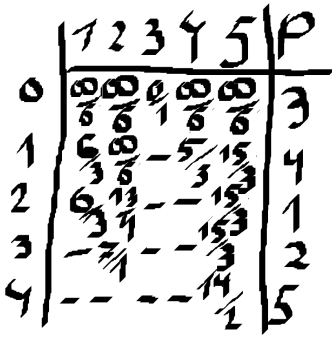 1 2 3 4 5 P
0 ∞/6 ∞/6 0/1 ∞/6 ∞/6 3
1 6/3 ∞/6 - 5/3 15/3 4
2 6/3 13/4 - - 15/3 1
3 - 7/1 - - 15/3 2
4 - - - - 14/2 5